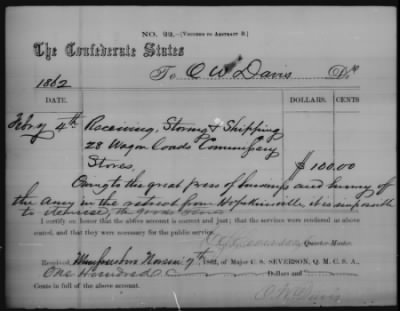 NO. 22.—(VOUCHER TO ABSTRACT B.)
The Confederate States
To C W Davis Dr
1862
DATE. DOLLARS. CENTS
Febry 4th Receiving, Storing & Shipping
28 Wagon loads Commissary
Stores, $100.00
Owing to the great press of business and hurry of
the Army in the retreat from Hopkinsville, it is
to
I certify on honor that the above account is correct and just; that the services were rendered as above
stated, and that they were necessary for the public service.
Quarter-Master.
Received, 7th 1862, of Major C. S. SEVERSON, Q. M. C. S. A.,
One Hundred Dollars and
Cents in full of the above account.
Davis